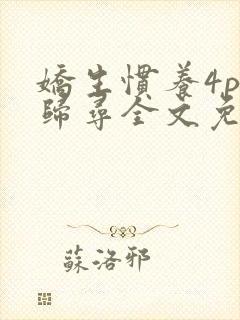 嬌生慣養4p
歸尋全文免
蘇洛邪